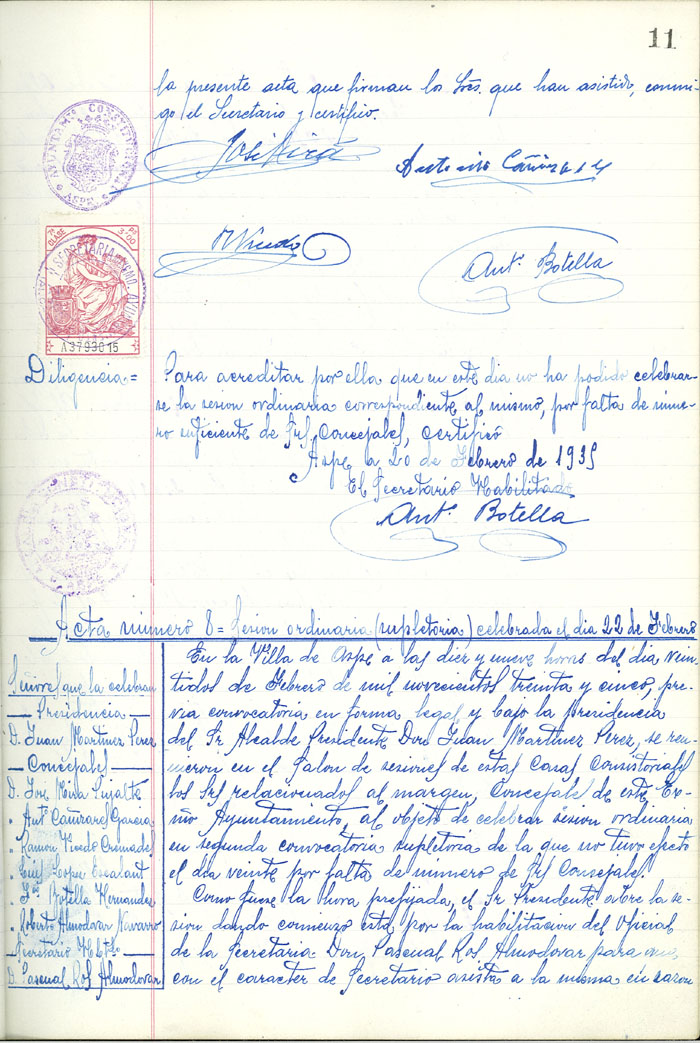 11
la presente acta que firman los Sres. que han asistido, conmi-
go el Secretario y certifico.
AYUNTAMTO CONSTITUCIONAL
ASPE
José Mira
Antonio Cañizares
7ª CLASE
3'00 PS
SECRETARIA
A3793015
R Vicedo
Antº. Botella
Diligencia=
Para acreditar por ella que en este dia no ha podido celebrar-
se la sesion ordinaria correspondiente al mismo, por falta de nume-
ro suficiente de Srs Concejales, certifico
Aspe a 20 de Febrero de 1935
El Secretario Habilitado
Antº. Botella
Acta número 8= Sesion ordinaria (supletoria) celebrada el dia 22 de Febrero
Señores que la celebran
Presidencia
D. Juan Martinez Perez
Concejales
D. Jose Mira
" Antº Cañizares Garcia
" Ramon Vicedo Cremades
" Luis Lopez Escalant
" Botella Hernandez
" Roberto Almodovar Navarro
Secretario Habtdo
D. Pascual Ros Almodovar
En la Villa de Aspe a las diez y nueve horas del dia vein-
tidos de Febrero de mil novecientos treinta y cinco, pre-
via convocatoria en forma legal y bajo la presidencia
del Sr Alcalde Presidente Don Juan Martinez Perez, se reu-
nieron en el Salon de sesiones de estas Casas Consistoriales
los Srs relacionados al margen, Concejales de este Ex-
mo Ayuntamiento, al objeto de celebrar sesion ordinaria
en segunda convocatoria supletoria de la que no tuvo efecto
el dia veinte por falta de número de Srs Consejales.
Como fuese la hora prefijada, el Sr Presidente abre la se-
sion dando comienzo esta por la habilitacion del Oficial
de la Secretaria Don Pascual Ros Almodovar para que,
con el caracter de Secretario asista a la misma en razon